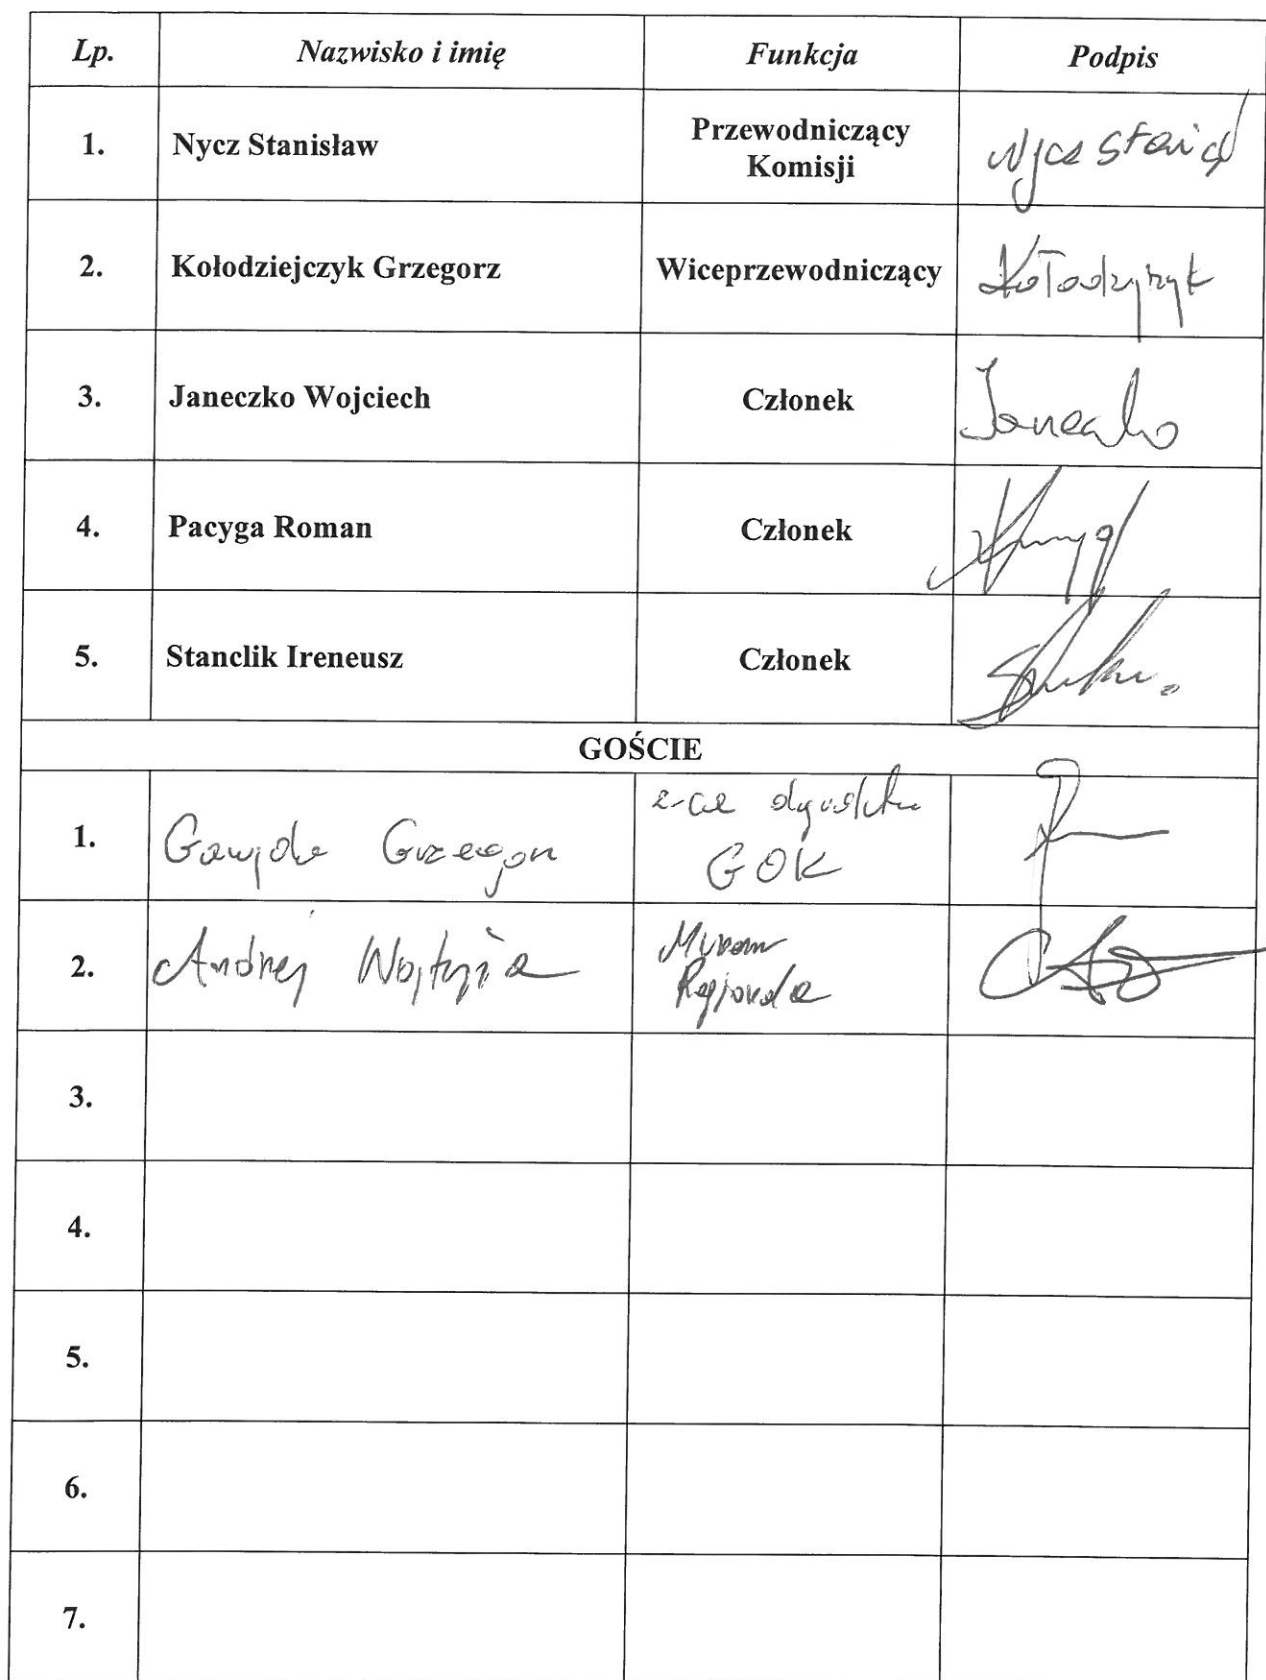 Lp. Nazwisko i imię Funkcja Podpis
1. Nycz Stanisław Przewodniczący Komisji Nycz
2. Kołodziejczyk Grzegorz Wiceprzewodniczący
3. Janeczko Wojciech Członek Janeczko
4. Pacyga Roman Członek
5. Stanclik Ireneusz Członek
GOŚCIE
1. Gawęda Grzegorz z-ca dyrektora GOK
2. Andrzej Muzeum Regionalne
3.
4.
5.
6.
7.